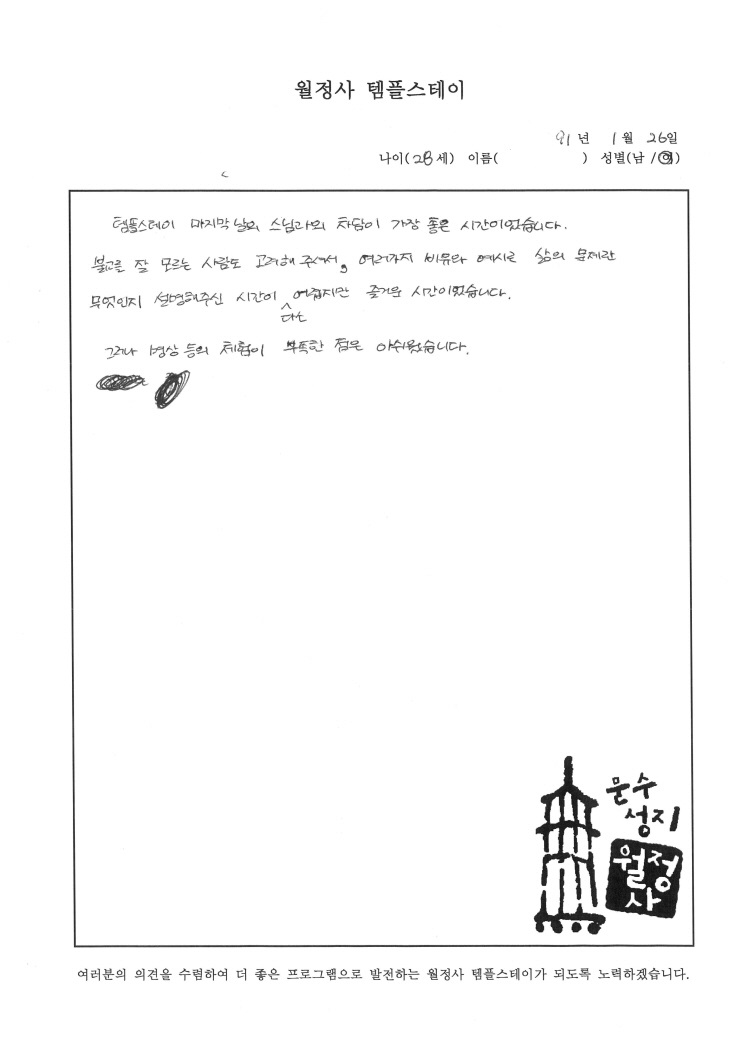 월정사 템플스테이
91년 1월 26일
나이(28세) 이름( ) 성별(남/여)
템플스테이 마지막 날의 스님과의 차담이 가장 좋은 시간이었습니다.
불교를 잘 모르는 사람도 고려해 주셔서, 여러가지 비유와 예시로 삶의 문제란
무엇인지 설명해주신 시간이 어렵지만 즐거운 시간이었습니다.
다소
그러나 명상 등의 체험이 부족한 점은 아쉬웠습니다.
문수
성지
월정
사
여러분의 의견을 수렴하여 더 좋은 프로그램으로 발전하는 월정사 템플스테이가 되도록 노력하겠습니다.